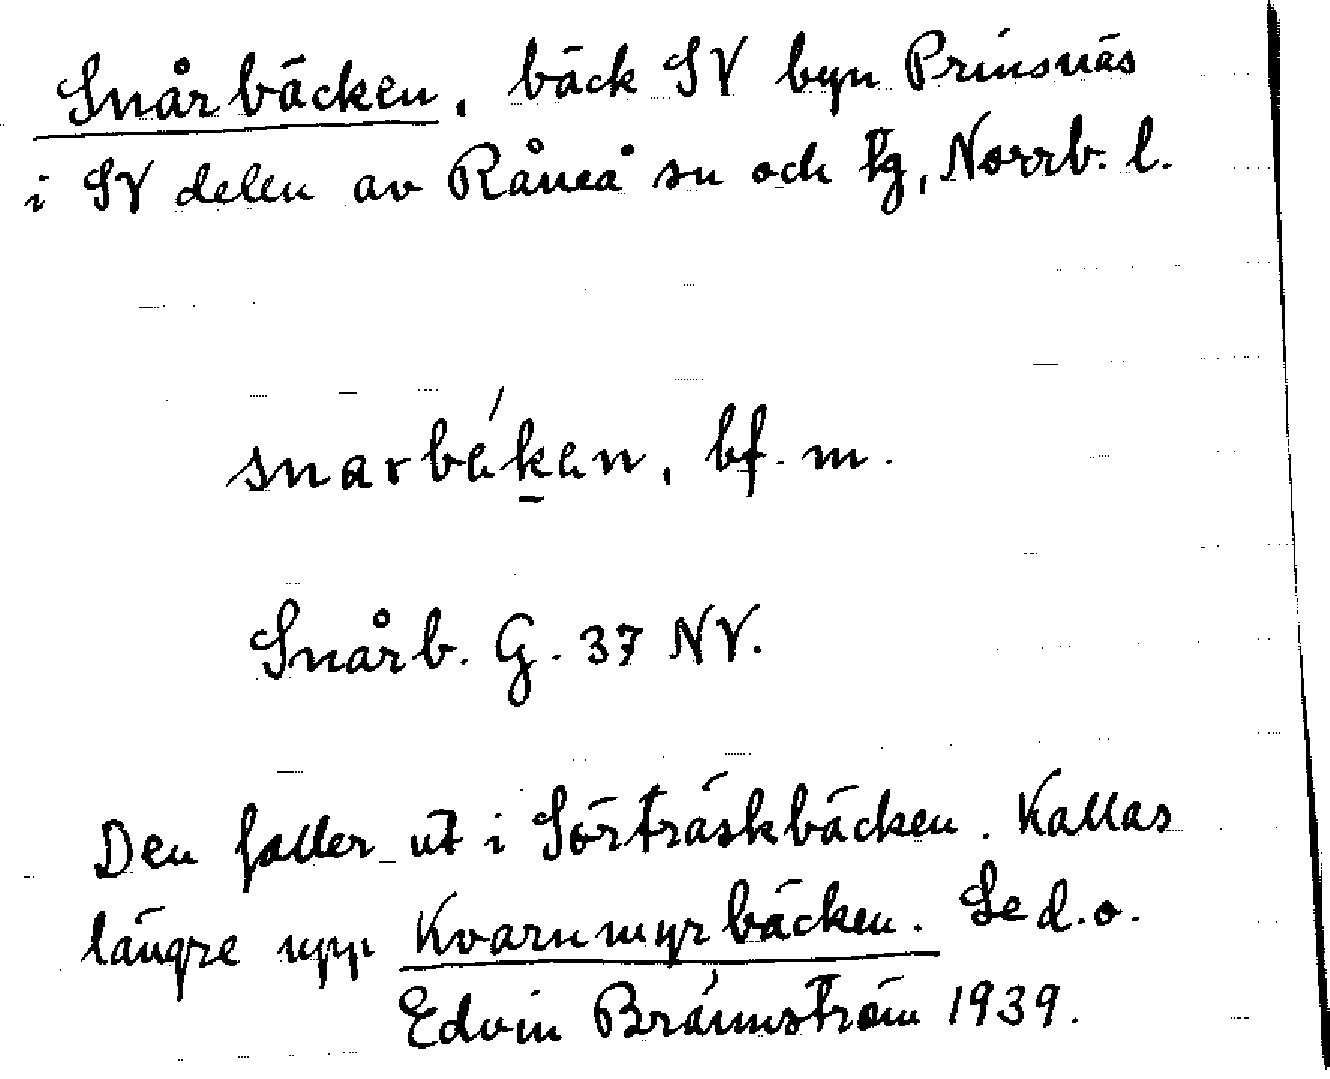 Snårbäcken, bäck SV byn Prinsnäs
i SV delen av Råneå sn och tg, Norrb. l.
snarbékan, bf. m.
Snårb. G. 37 NV.
Den faller ut i Sörträskbäcken. Kallas
längre upp Kvarnmyrbäcken. Se d.o.
Edvin Brännström 1939.